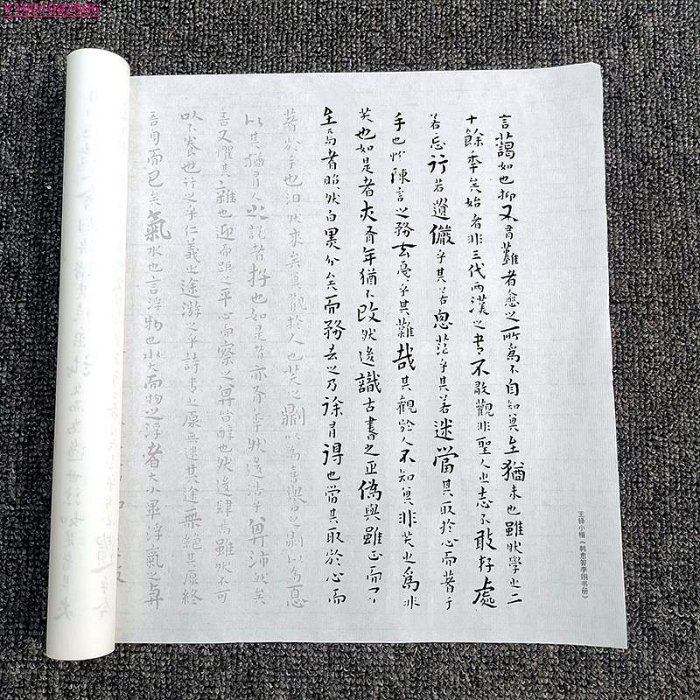 言藹如也抑又有難者愈之所為不自知其至猶未也雖然學之二
十餘年矣始者非三代兩漢之書不敢觀非聖人之志不敢存處
若忘行若遺儼乎其若思茫乎其若迷當其取於心而著于
手也惟陳言之務去戛乎其難哉其觀於人不知其非笑之為非
笑也如是者亦有年猶不改然後識古書之正偽與雖正而不
至焉者昭然白黑分矣而務去之乃徐有得也當其取於心而
著於手也汩然來矣其觀於人也笑之則以為喜譽之則以為憂
以其猶有人之說者存也如是者亦有年然後浩乎其沛然矣
吾又懼其雜也迎而距之平心而察之其皆醇也然後肆焉雖然不可
以不養也行之乎仁義之途游之乎詩書之源無迷其途無絕其源終
吾身而已矣氣水也言浮物也水大而物之浮者大小畢浮氣之與
王铎小楷《韩愈答李翊书册》